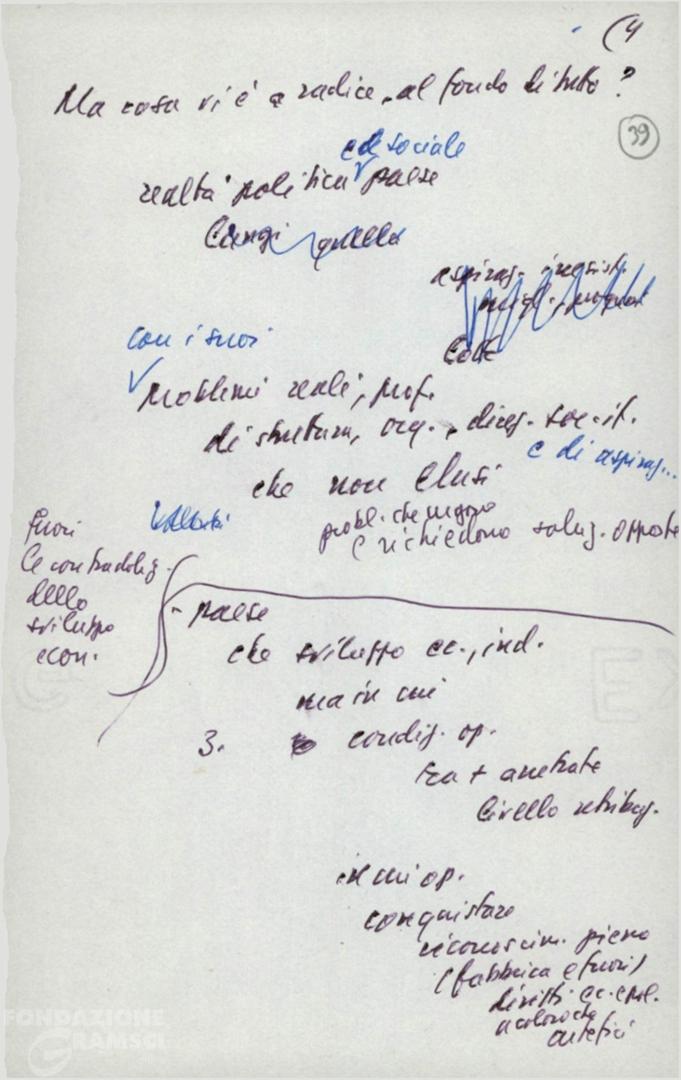 (4
Ma cosa vi è a radice, al fondo di tutto?
39
ed sociale
realtà politica paese
quella
aspiraz.
con i suoi
problemi reali, prof.
di struttura, org.,
e di aspiraz...
che non elusi
probl. che urgono
e richiedono soluz. opposte
Fuori
le contraddiz.
dello
sviluppo
econ.
- paese
che sviluppo ec., ind.
ma in cui
3. condiz. op.
tra + arretrate
livello retribuz.
in cui op.
conquistare
riconoscim. pieno
(fabbrica e fuori)
diritti ec. e pol.
a coloro che
artefici
FONDAZIONE
GRAMSCI